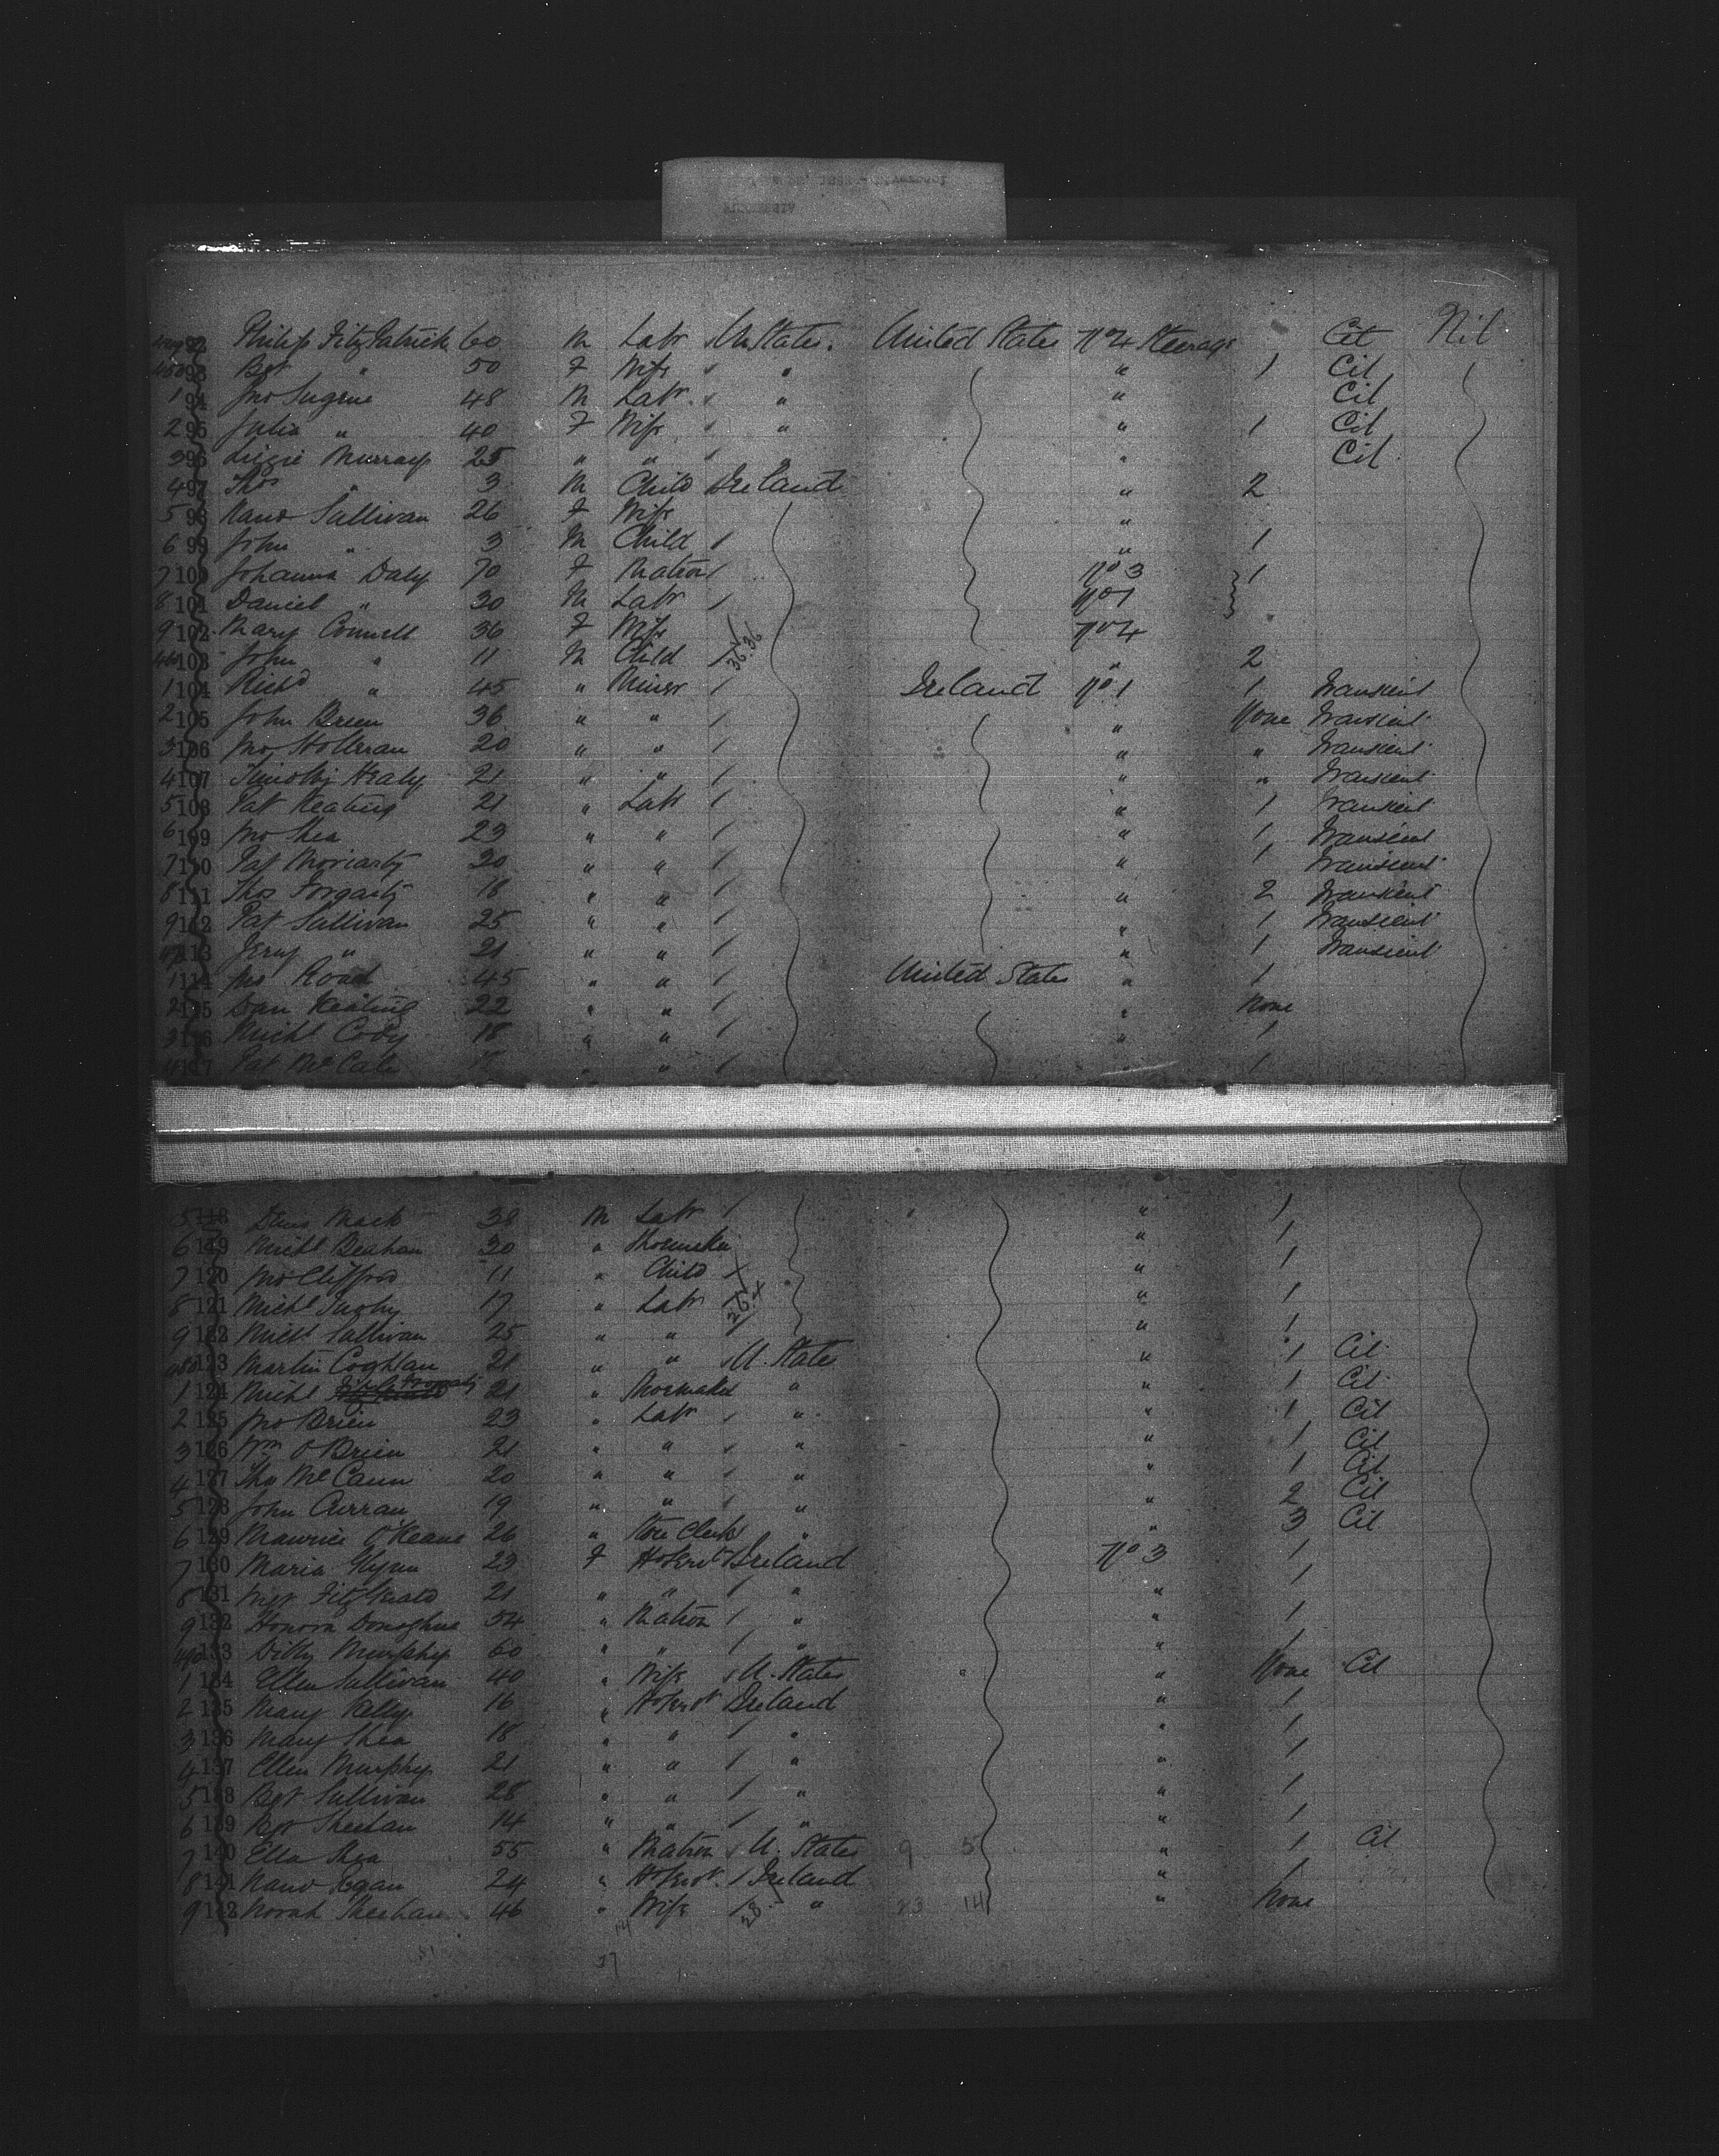 92 Philip FitzPatrick 60 M Labr U States. United States No 4 Steerage Cit Nil
93 Bgt " 50 F Wife " " 1 Cit
1 94 Jno Sugrue 48 M Labr " " Cit
2 95 Julia " 40 F Wife " " 1 Cit
3 96 Lizzie Murray 25 " " " " Cit
4 97 Thos " 3 M Child Ireland " 2
5 98 Sullivan 26 F Wife "
6 99 John " 3 M Child / " 1
7 100 Johanna Daly 70 F Matron / No 3 1
8 101 Daniel " 30 M Labr / No 1
9 102 Mary Connell 36 F Wife No 4
103 John " 11 M Child / " 2
1 104 Richd " 45 " Miner / Ireland No 1 1 Transient
2 105 John Breen 36 " " / " None Transient
3 106 Jno Holleran 20 " " / " " Transient
4 107 Timothy Healy 21 " " / " " Transient
5 108 Pat Keating 21 " Labr / " 1 Transient
6 109 Jno Shea 23 " " / " 1 Transient
7 110 Pat Moriarty 20 " " / " 1 Transient
8 111 Thos Forgarty 18 " " / " 2 Transient
9 112 Pat Sullivan 25 " " / " 1 Transient
113 Jerry " 21 " " / " 1 Transient
1 114 Jno Road 45 " " / United States " 1
2 115 Dan Keating 22 " " / " None
3 116 Michl Cody 18 " " / " 1
4 117 Pat McCabe " " / " 1
5 118 Denis Mack 38 M Labr / " 1
6 119 Michl Beahan 30 " Shoemaker " 1
7 120 Jno Clifford 11 " Child / " 1
8 121 Michl 17 " Labr / " 1
9 122 Michl Sullivan 25 " " " 1
123 Martin Coghlan 21 " " U. States " 1 Cit
1 124 Michl 21 " Shoemaker " " 1 Cit
2 125 Jno Brien 23 " Labr " " 1 Cit
3 126 Wm O Brien 21 " " " " 1 Cit
4 127 Thos McCann 20 " " " " 1 Cit
5 128 John Curran 19 " " " " 2 Cit
6 129 Maurice O'Keane 26 " Store Clerk " " 3 Cit
7 130 Maria Flynn 23 F Ireland No 3 1
8 131 Mgt FitzGerald 21 " " / " " 1
9 132 Honora Donoghue 54 " Matron / " " 1
133 Murphy 60 " " / " " 1
1 134 Ellen Sullivan 40 " Wife U. States " None Cit
2 135 Mary Kelly 16 " Ireland " 1
3 136 Mary Shea 18 " " / " " 1
4 137 Ellen Murphy 21 " " / " " 1
5 138 Bgt Sullivan 28 " " / " " 1
6 139 Bgt Sheehan 14 " " / " " 1
7 140 Ella Shea 55 " Matron U. States 9 5 " 1 Cit
8 141 24 " / Ireland " 1
9 142 Norah Sheehan 46 " Wife / " 23 14 " None
37